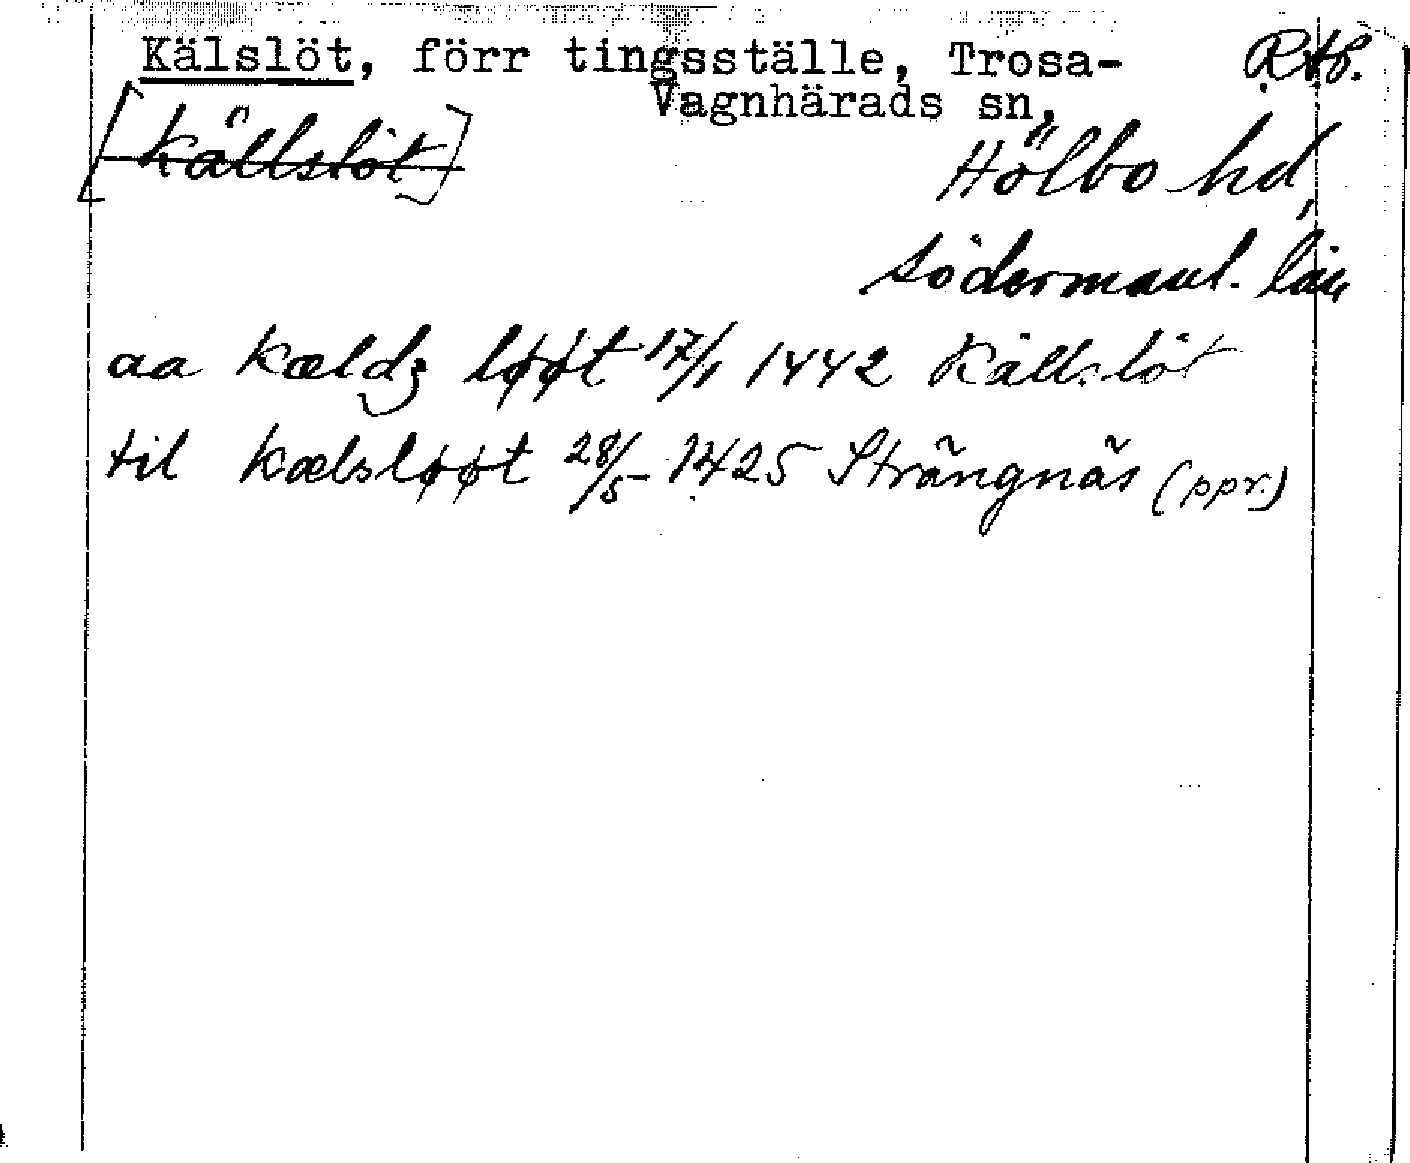 Kälslöt, förr tingsställe, Trosa- RAp.
Vagnhärads sn,
[Källslöt]
Hölbo hd,
södermanl. län
aa kældz løøt 17/1 1442 Källslöt
til kælsløøt 28/5 1425 Strängnäs (ppr.)